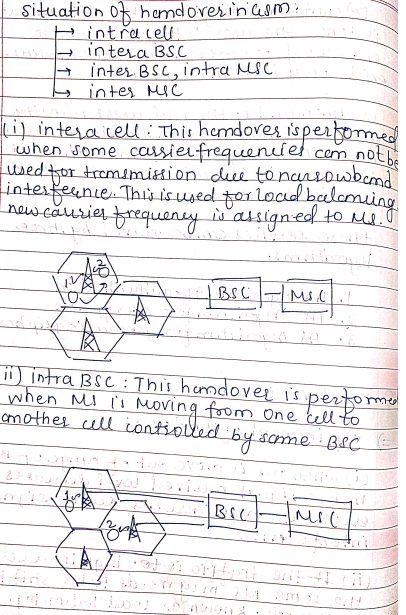 situation of handover in GSM:
→ intra cell
→ intera BSC
→ inter BSC, intra MSC
→ inter MSC
(i) intera cell: This handover is performed
when some carrier frequencies can not be
used for transmission due to narrowband
interference. This is used for load balancing
new carrier frequency is assigned to MS.
1 2
BSC MSC
ii) intra BSC: This handover is performed
when MS is moving from one cell to
another cell controlled by same BSC
1
2
BSC MSC